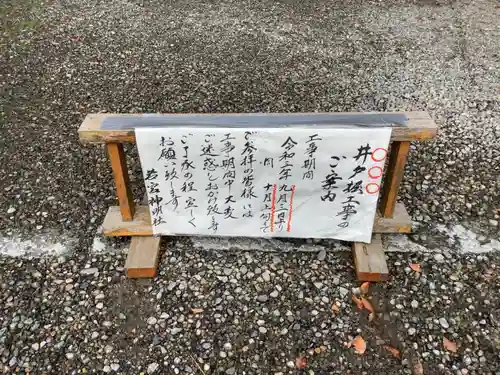 井戸掘工事の
ご案内
工事期間
令和二年九月三日より
間 十月上旬
ご参拝の皆様には
工事期間中大変
ご迷惑をおかけ致しますが
ご了承の程宜しく
お願い致します。
若宮神明社